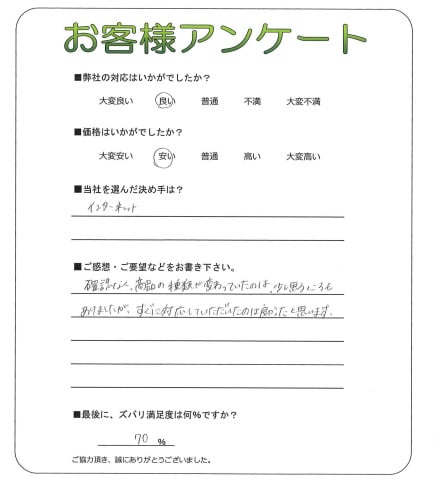 お客様アンケート
■弊社の対応はいかがでしたか?
大変良い 良い 普通 不満 大変不満
■価格はいかがでしたか?
大変安い 安い 普通 高い 大変高い
■当社を選んだ決め手は?
インターネット
■ご感想・ご要望などをお書き下さい。
確認なく、商品の種類が変わっていたのは、少し思うところも
ありましたが、すぐに対応していただいたのは良かったと思います。
■最後に、ズバリ満足度は何%ですか?
70 %
ご協力頂き、誠にありがとうございました。